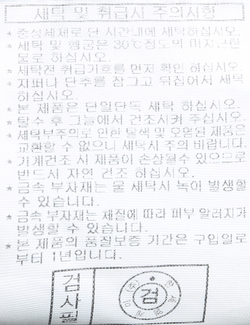 세탁 및 취급시 주의사항
* 중성세제로 단시간내에 세탁하십시오.
* 세탁 및 헹굼은 30℃정도의 미지근한
물로 하십시오.
* 세탁전 취급기호를 먼저 확인 하십시오.
* 지퍼나 단추를 잠그고 뒤집어서 세탁
하십시오.
* 본 제품은 단일단독 세탁 하십시오.
* 탈수 후 그늘에서 건조시켜 주십시오.
* 세탁부주의로 인한 탈색 및 오염된 제품은
교환할 수 없으니 세탁시 주의 바랍니다.
* 기계건조 시 제품이 손상될수 있으므로
반드시 자연 건조 하십시오.
* 금속 부자재는 물 세탁시 녹이 발생할
수 있습니다.
* 금속 부자재는 체질에 따라 피부 알러지가
발생할 수 있습니다.
* 본 제품의 품질보증 기간은 구입일로
부터 1년입니다.
검사필
검